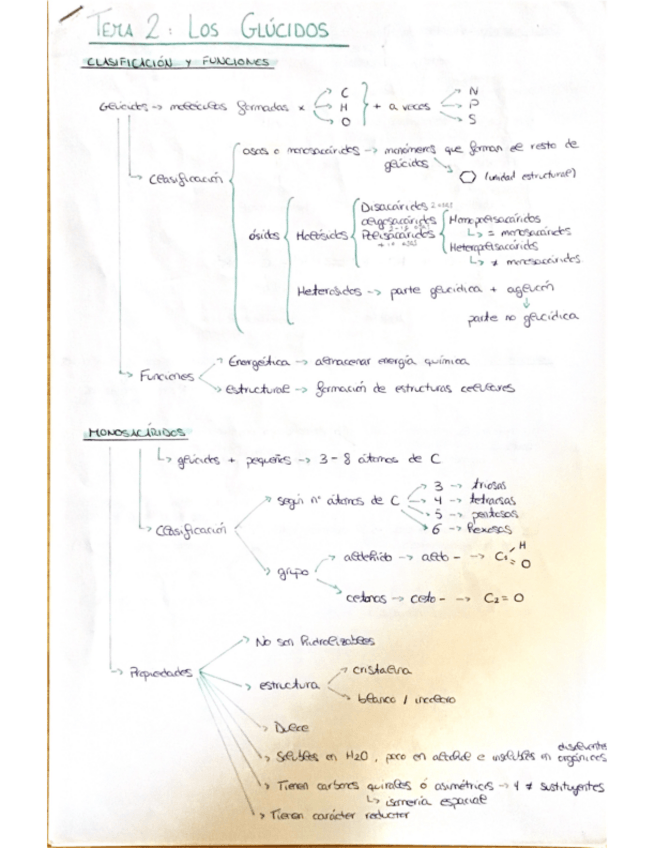 TEMA 2: LOS GLÚCIDOS
CLASIFICACIÓN Y FUNCIONES
Glúcidos → moléculas formadas x C H O + a veces N P S
Clasificación
osas o monosacáridos → monómeros que forman el resto de
glúcidos
(unidad estructural)
ósidos
Holósidos
Disacáridos 2 osas
oligosacáridos
Polisacáridos
+ 10 osas
Homopolisacáridos
↳ = monosacáridos
Heteropolisacáridos
↳ ≠ monosacáridos
Heterósidos → parte glucídica + aglucón
parte no glucídica
Funciones
Energética → almacenar energía química
estructural → formación de estructuras celulares
MONOSACÁRIDOS
↳ glúcidos + pequeños → 3 - 8 átomos de C
Clasificación
según nº átomos de C
3 → triosas
4 → tetrosas
5 → pentosas
6 → hexosas
grupo
aldehído → aldo - → C₁ H O
cetonas → ceto - → C₂ = O
Propiedades
No son hidrolizables
estructura
cristalina
blanco / incoloro
Dulce
Solubles en H₂O, poco en alcohol e insolubles en disolventes orgánicos
Tienen carbonos quirales ó asimétricos → 4 ≠ sustituyentes
↳ isomería espacial
Tienen carácter reductor